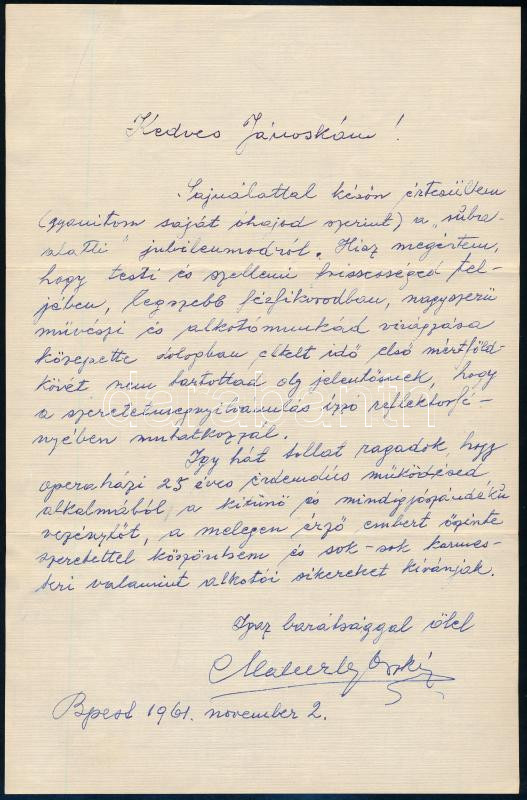 Kedves Jánoskám!
Sajnálattal későn értesültem
(gyanitom saját óhajod szerint) a „subra-
alatti" jubileumodról. Hisz megértem,
hogy testi és szellemi frissességed tel-
jében, legszebb férfikorodban, nagyszerü
müvészi és alkotómunkád virágzása
közepette oslopban eltelt idő első mérföld-
kövét nem tartottad oly jelentősnek, hogy
a szeretetmegnyilvánulás izzó reflektorfé-
nyében mutatkozzál.
Igy hát tollat ragadok, hogy
operaházi 25 éves érdemdús müködésed
alkalmából, a kitünő és mindigjószándéku
vezénylőt, a melegen érző embert őszinte
szeretettel köszöntsem és sok-sok karmes-
teri valamint alkotói sikereket kivánjak.
Igaz barátsággal ölel
Maleczky Oszkár
Bpest 1961. november 2.
darabanth